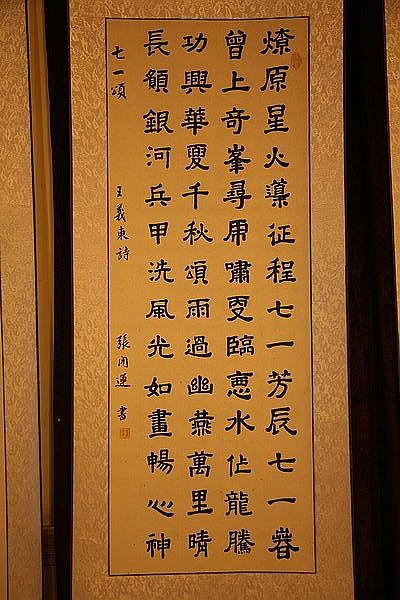 燎原星火征程七一芳辰七一
曾上奇峯尋虎嘯臨水作龍騰
功興華夏千秋頌雨過幽燕萬里晴
長願銀河兵甲洗風光如畫暢心神
七一頌 王義東詩 張開運書